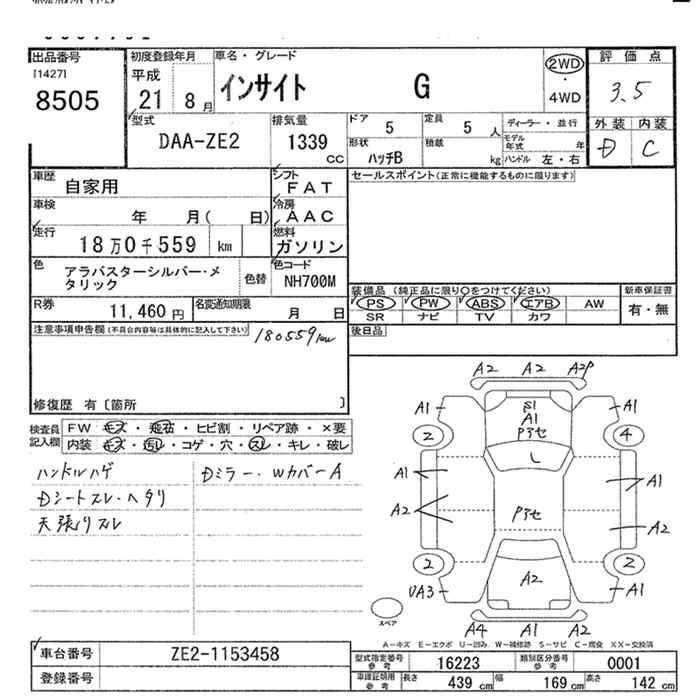 出品番号
[1427]
8505
初度登録年月
平成
21 8 月
車名・グレード
インサイト G
2WD
・
4WD
評価点
3.5
外装 内装
D C
型式
DAA-ZE2
排気量
1339
CC
ドア 5
定員 5 人
形状 ハッチB
積載 kg
ディーラー・並行
モデル年式 年
ハンドル 左・右
車歴
自家用
シフト
FAT
車検
年 月( 日)
冷房
AAC
走行
18万0千559 km
燃料
ガソリン
色
アラバスターシルバー・メタリック
色替
色コード
NH700M
R券
11,460 円
名変通知期限
月 日
セールスポイント(正常に機能するものに限ります)
装備品 (純正品に限り○をつけてください)
PS PW ABS エアB AW
SR ナビ TV カワ
新車保証書
有・無
後日品
注意事項申告欄(不具合内容等は具体的に記入して下さい)
180559km
修復歴 有〔箇所 〕
検査員
記入欄
FW キズ・飛石・ヒビ割・リペア跡・×要
内装 キズ・汚レ・コゲ・穴・スレ・キレ・破レ
ハンドルハゲ
Dシートスレ・ヘタリ
天張りスレ
Dミラー・WカバーA
A2 A2 A2P
A1 S1 A1
A1
Pアセ
2 4
L
A1 A1
A2 Pアセ A2
2 2
UA3 A2 A1
A4 A1 A2
スペア
A−キズ E−エクボ U−凹み W−補修跡 S−サビ C−腐食 XX−交換済
車台番号
ZE2-1153458
登録番号
型式指定番号
参考
16223
類別区分番号
参考
0001
車庫証明用
参考
長さ 439 cm
幅 169 cm
高さ 142 cm